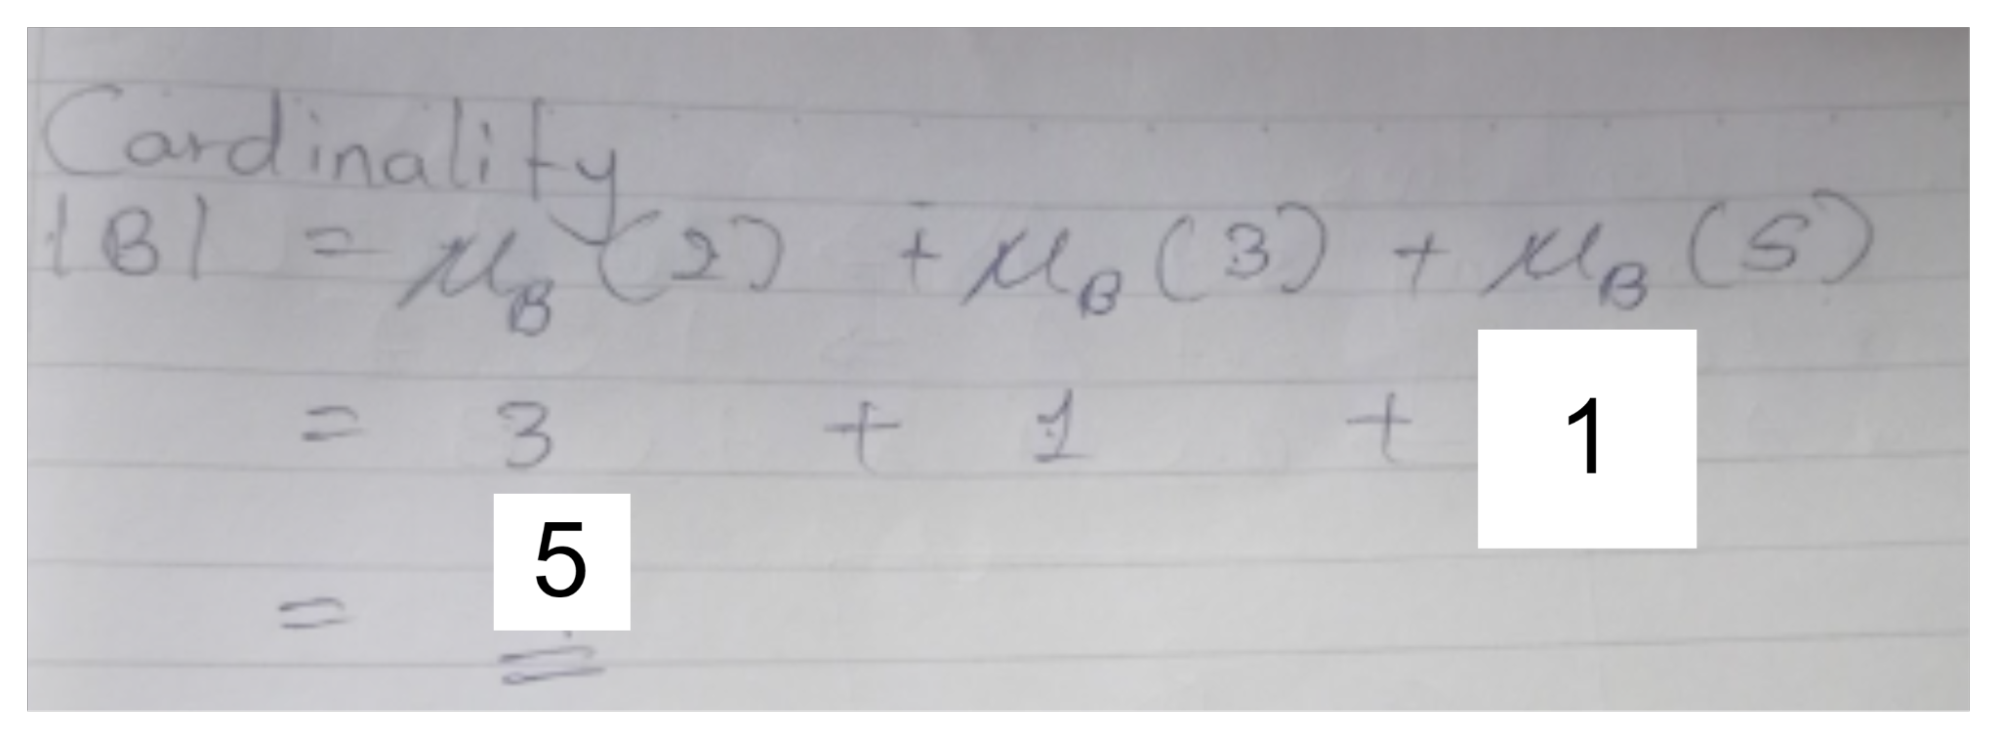 Cardinality
|B| = μ_B(2) + μ_B(3) + μ_B(5)
= 3 + 1 + 1
= 5